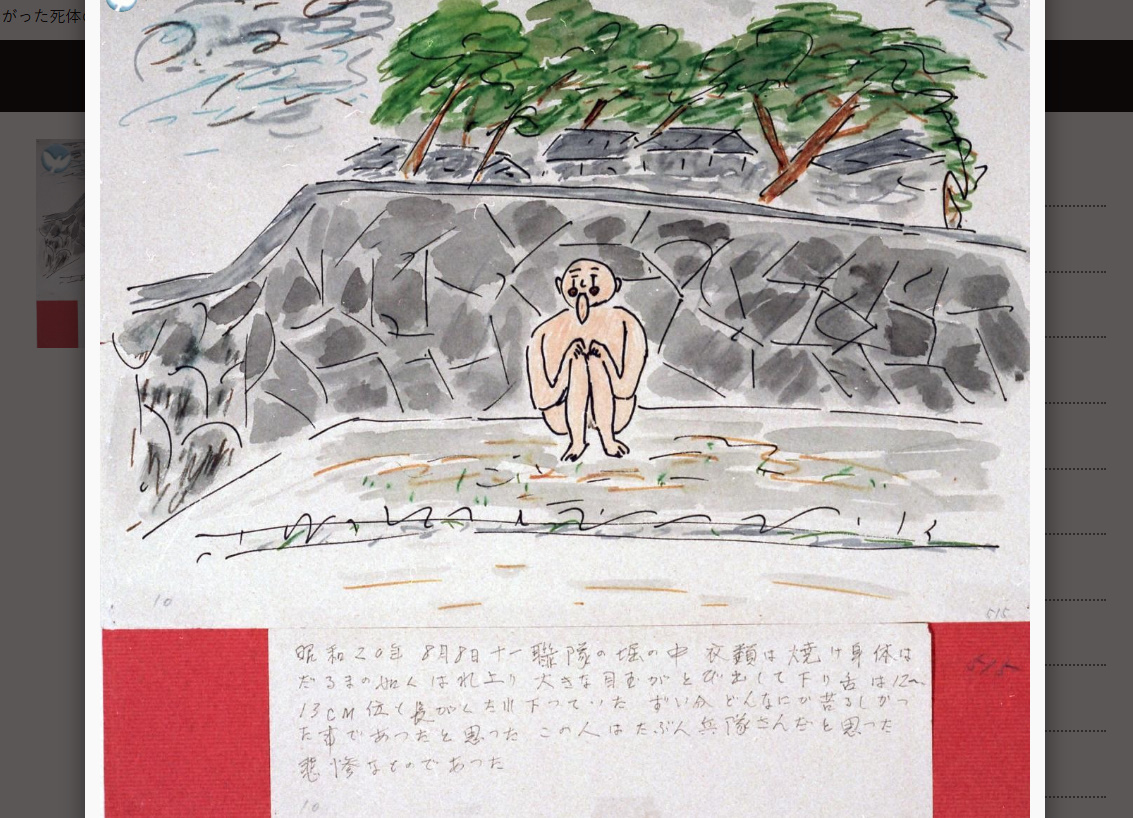 がった死体
昭和20年 8月8日十一聯隊の堀の中 衣類は焼け身体は
だるまの如くはれ上り 大きな目玉がとび出して下り舌は12〜
13CM位も長がくたれ下つていた ずい分どんなにか苦るしかつ
た事であつたと思った この人はたぶん兵隊さんだと思った
悲惨なものであつた
10
515
515
10